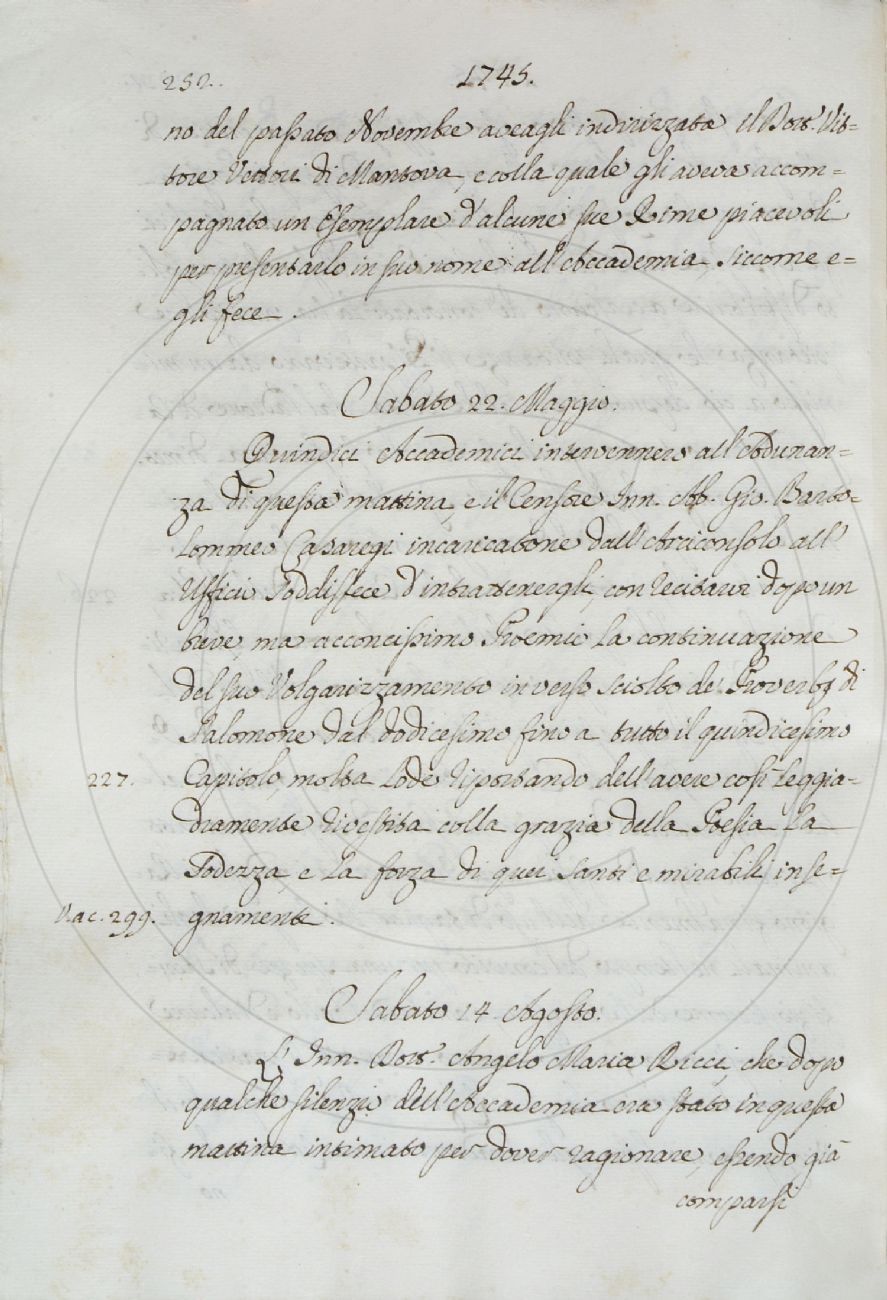 232.
1745.
no del passato Novembre aveagli indirizzata il Dott. Vit=
tore Vettori di Mantova, e colla quale gli aveva accom=
pagnato un Esemplare d'alcune sue Rime piacevoli
per presentarlo in suo nome all'Accademia, siccome e=
gli fece.
Sabato 22. Maggio.
Quindici Accademici intervennero all'Adunan=
za di questa mattina, e il Censore Inn. Ab. Gio. Barto=
lommeo Casaregi incaricatone dall'Arciconsolo all'
Uffici soddisfece d'intrattenergli, con recitarvi dopo un
breve ma acconcissimo Proemio la continuazione
del suo Volgarizzamento in verso sciolto de' Proverbj di
Salomone dal dodicesimo fino a tutto il quindicesimo
227. Capitolo, molta lode riportando dell'avere così leggia=
dramente rivestita colla grazia della Poesia la
sodezza e la forza di quei santi e mirabili inse=
V. a c. 299. gnamenti.
Sabato 14. Agosto.
L'Inn. Dott. Angelo Maria Ricci, che dopo
qualche silenzio dell'Accademia era stato in questa
mattina intimato per dover ragionare, essendo già
comparsi